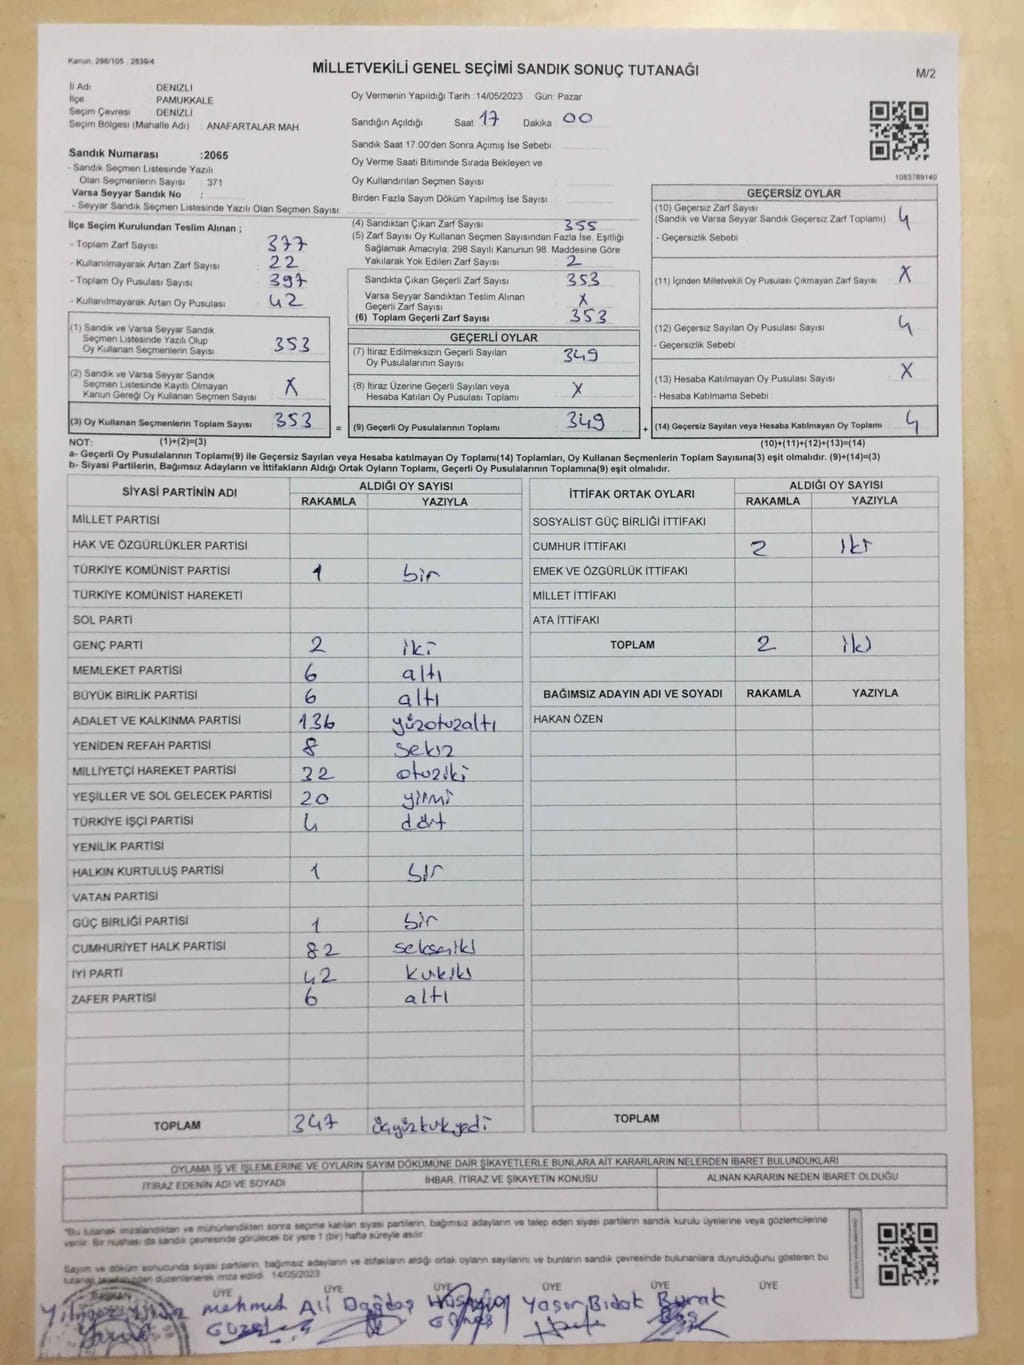 Kanun. 298/105 . 2839/4
MİLLETVEKİLİ GENEL SEÇİMİ SANDIK SONUÇ TUTANAĞI
M/2
İli Adı DENİZLİ
İlçe PAMUKKALE
Seçim Çevresi DENİZLİ
Seçim Bölgesi (Mahalle Adı) : ANAFARTALAR MAH
Oy Vermenin Yapıldığı Tarih :14/05/2023 Gün: Pazar
Sandığın Açıldığı Saat 17 Dakika 00
Sandık Saat 17:00'den Sonra Açımış İse Sebebi
Oy Verme Saati Bitiminde Sırada Bekleyen ve
Oy Kullandırılan Seçmen Sayısı
Birden Fazla Sayım Döküm Yapılmış İse Sayısı
1083789140
Sandık Numarası :2065
- Sandık Seçmen Listesinde Yazılı
Olan Seçmenlerin Sayısı : 371
Varsa Seyyar Sandık No :
- Seyyar Sandık Seçmen Listesinde Yazılı Olan Seçmen Sayısı
İlçe Seçim Kurulundan Teslim Alınan ;
- Toplam Zarf Sayısı 377
- Kullanılmayarak Artan Zarf Sayısı 22
- Toplam Oy Pusulası Sayısı 397
- Kullanılmayarak Artan Oy Pusulası 42
(1) Sandık ve Varsa Seyyar Sandık
Seçmen Listesinde Yazılı Olup
Oy Kullanan Seçmenlerin Sayısı 353
(2) Sandık ve Varsa Seyyar Sandık
Seçmen Listesinde Kayıtlı Olmayan
Kanun Gereği Oy Kullanan Seçmen Sayısı X
(3) Oy Kullanan Seçmenlerin Toplam Sayısı 353 =
(4) Sandıktan Çıkan Zarf Sayısı 355
(5) Zarf Sayısı Oy Kullanan Seçmen Sayısından Fazla İse, Eşitliği
Sağlamak Amacıyla, 298 Sayılı Kanunun 98. Maddesine Göre
Yakılarak Yok Edilen Zarf Sayısı 2
Sandıkta Çıkan Geçerli Zarf Sayısı 353
Varsa Seyyar Sandıktan Teslim Alınan
Geçerli Zarf Sayısı X
(6) Toplam Geçerli Zarf Sayısı 353
GEÇERLİ OYLAR
(7) İtiraz Edilmeksizin Geçerli Sayılan
Oy Pusulalarının Sayısı 349
(8) İtiraz Üzerine Geçerli Sayılan veya
Hesaba Katılan Oy Pusulası Toplamı X
(9) Geçerli Oy Pusulalarının Toplamı 349 +
GEÇERSİZ OYLAR
(10) Geçersiz Zarf Sayısı
(Sandık ve Varsa Seyyar Sandık Geçersiz Zarf Toplamı) 4
- Geçersizlik Sebebi
(11) İçinden Milletvekili Oy Pusulası Çıkmayan Zarf Sayısı X
(12) Geçersiz Sayılan Oy Pusulası Sayısı 4
- Geçersizlik Sebebi:
(13) Hesaba Katılmayan Oy Pusulası Sayısı X
- Hesaba Katılmama Sebebi
(14) Geçersiz Sayılan veya Hesaba Katılmayan Oy Toplamı 4
NOT: (1)+(2)=(3) (10)+(11)+(12)+(13)=(14)
a- Geçerli Oy Pusulalarının Toplamı(9) ile Geçersiz Sayılan veya Hesaba katılmayan Oy Toplamı(14) Toplamları, Oy Kullanan Seçmenlerin Toplam Sayısına(3) eşit olmalıdır. (9)+(14)=(3)
b- Siyasi Partilerin, Bağımsız Adayların ve İttifakların Aldığı Ortak Oyların Toplamı, Geçerli Oy Pusulalarının Toplamına(9) eşit olmalıdır.
SİYASİ PARTİNİN ADI ALDIĞI OY SAYISI
RAKAMLA YAZIYLA
MİLLET PARTİSİ
HAK VE ÖZGÜRLÜKLER PARTİSİ
TÜRKİYE KOMÜNİST PARTİSİ 1 bir
TÜRKİYE KOMÜNİST HAREKETİ
SOL PARTİ
GENÇ PARTİ 2 iki
MEMLEKET PARTİSİ 6 altı
BÜYÜK BİRLİK PARTİSİ 6 altı
ADALET VE KALKINMA PARTİSİ 136 yüzotuzaltı
YENİDEN REFAH PARTİSİ 8 sekız
MİLLİYETÇİ HAREKET PARTİSİ 32 otuziki
YEŞİLLER VE SOL GELECEK PARTİSİ 20 yirmi
TÜRKİYE İŞÇİ PARTİSİ 4 dört
YENİLİK PARTİSİ
HALKIN KURTULUŞ PARTİSİ 1 bir
VATAN PARTİSİ
GÜÇ BİRLİĞİ PARTİSİ 1 bir
CUMHURİYET HALK PARTİSİ 82 sekseniki
İYİ PARTİ 42 kırkiki
ZAFER PARTİSİ 6 altı
TOPLAM 347 üçyüzkırkyedi
İTTİFAK ORTAK OYLARI ALDIĞI OY SAYISI
RAKAMLA YAZIYLA
SOSYALİST GÜÇ BİRLİĞİ İTTİFAKI
CUMHUR İTTİFAKI 2 iki
EMEK VE ÖZGÜRLÜK İTTİFAKI
MİLLET İTTİFAKI
ATA İTTİFAKI
TOPLAM 2 iki
BAĞIMSIZ ADAYIN ADI VE SOYADI RAKAMLA YAZIYLA
HAKAN ÖZEN
TOPLAM
OYLAMA İŞ VE İŞLEMLERİNE VE OYLARIN SAYIM DÖKÜMÜNE DAİR ŞİKAYETLERLE BUNLARA AİT KARARLARIN NELERDEN İBARET BULUNDUKLARI
İTİRAZ EDENİN ADI VE SOYADI İHBAR, İTİRAZ VE ŞİKAYETİN KONUSU ALINAN KARARIN NEDEN İBARET OLDUĞU
*Bu tutanak imzalandıktan ve mühürlendikten sonra seçime katılan siyasi partilerin, bağımsız adayların ve talep eden siyasi partilerin sandık kurulu üyelerine veya gözlemcilerine
verilir. Bir nüshası da sandık çevresinde görülecek bir yere 1 (bir) hafta süreyle asılır.
Sayım ve döküm sonucunda siyasi partilerin, bağımsız adayların ve ittifakların aldığı ortak oyların sayılarını ve bunların sandık çevresinde bulunanlara duyrulduğunu gösteren bu
tutanak tarafımızdan düzenlenerek imza edildi. 14/05/2023
BAŞKAN ÜYE ÜYE ÜYE ÜYE ÜYE
Mehmet Ali Dağdaş Yaşar Bidak Burak
Güzel Güneş